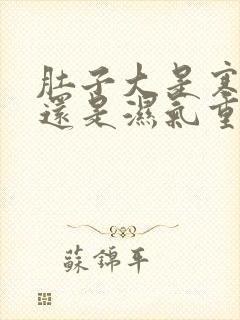 肚子大是寒
還是濕氣重
蘇錦年